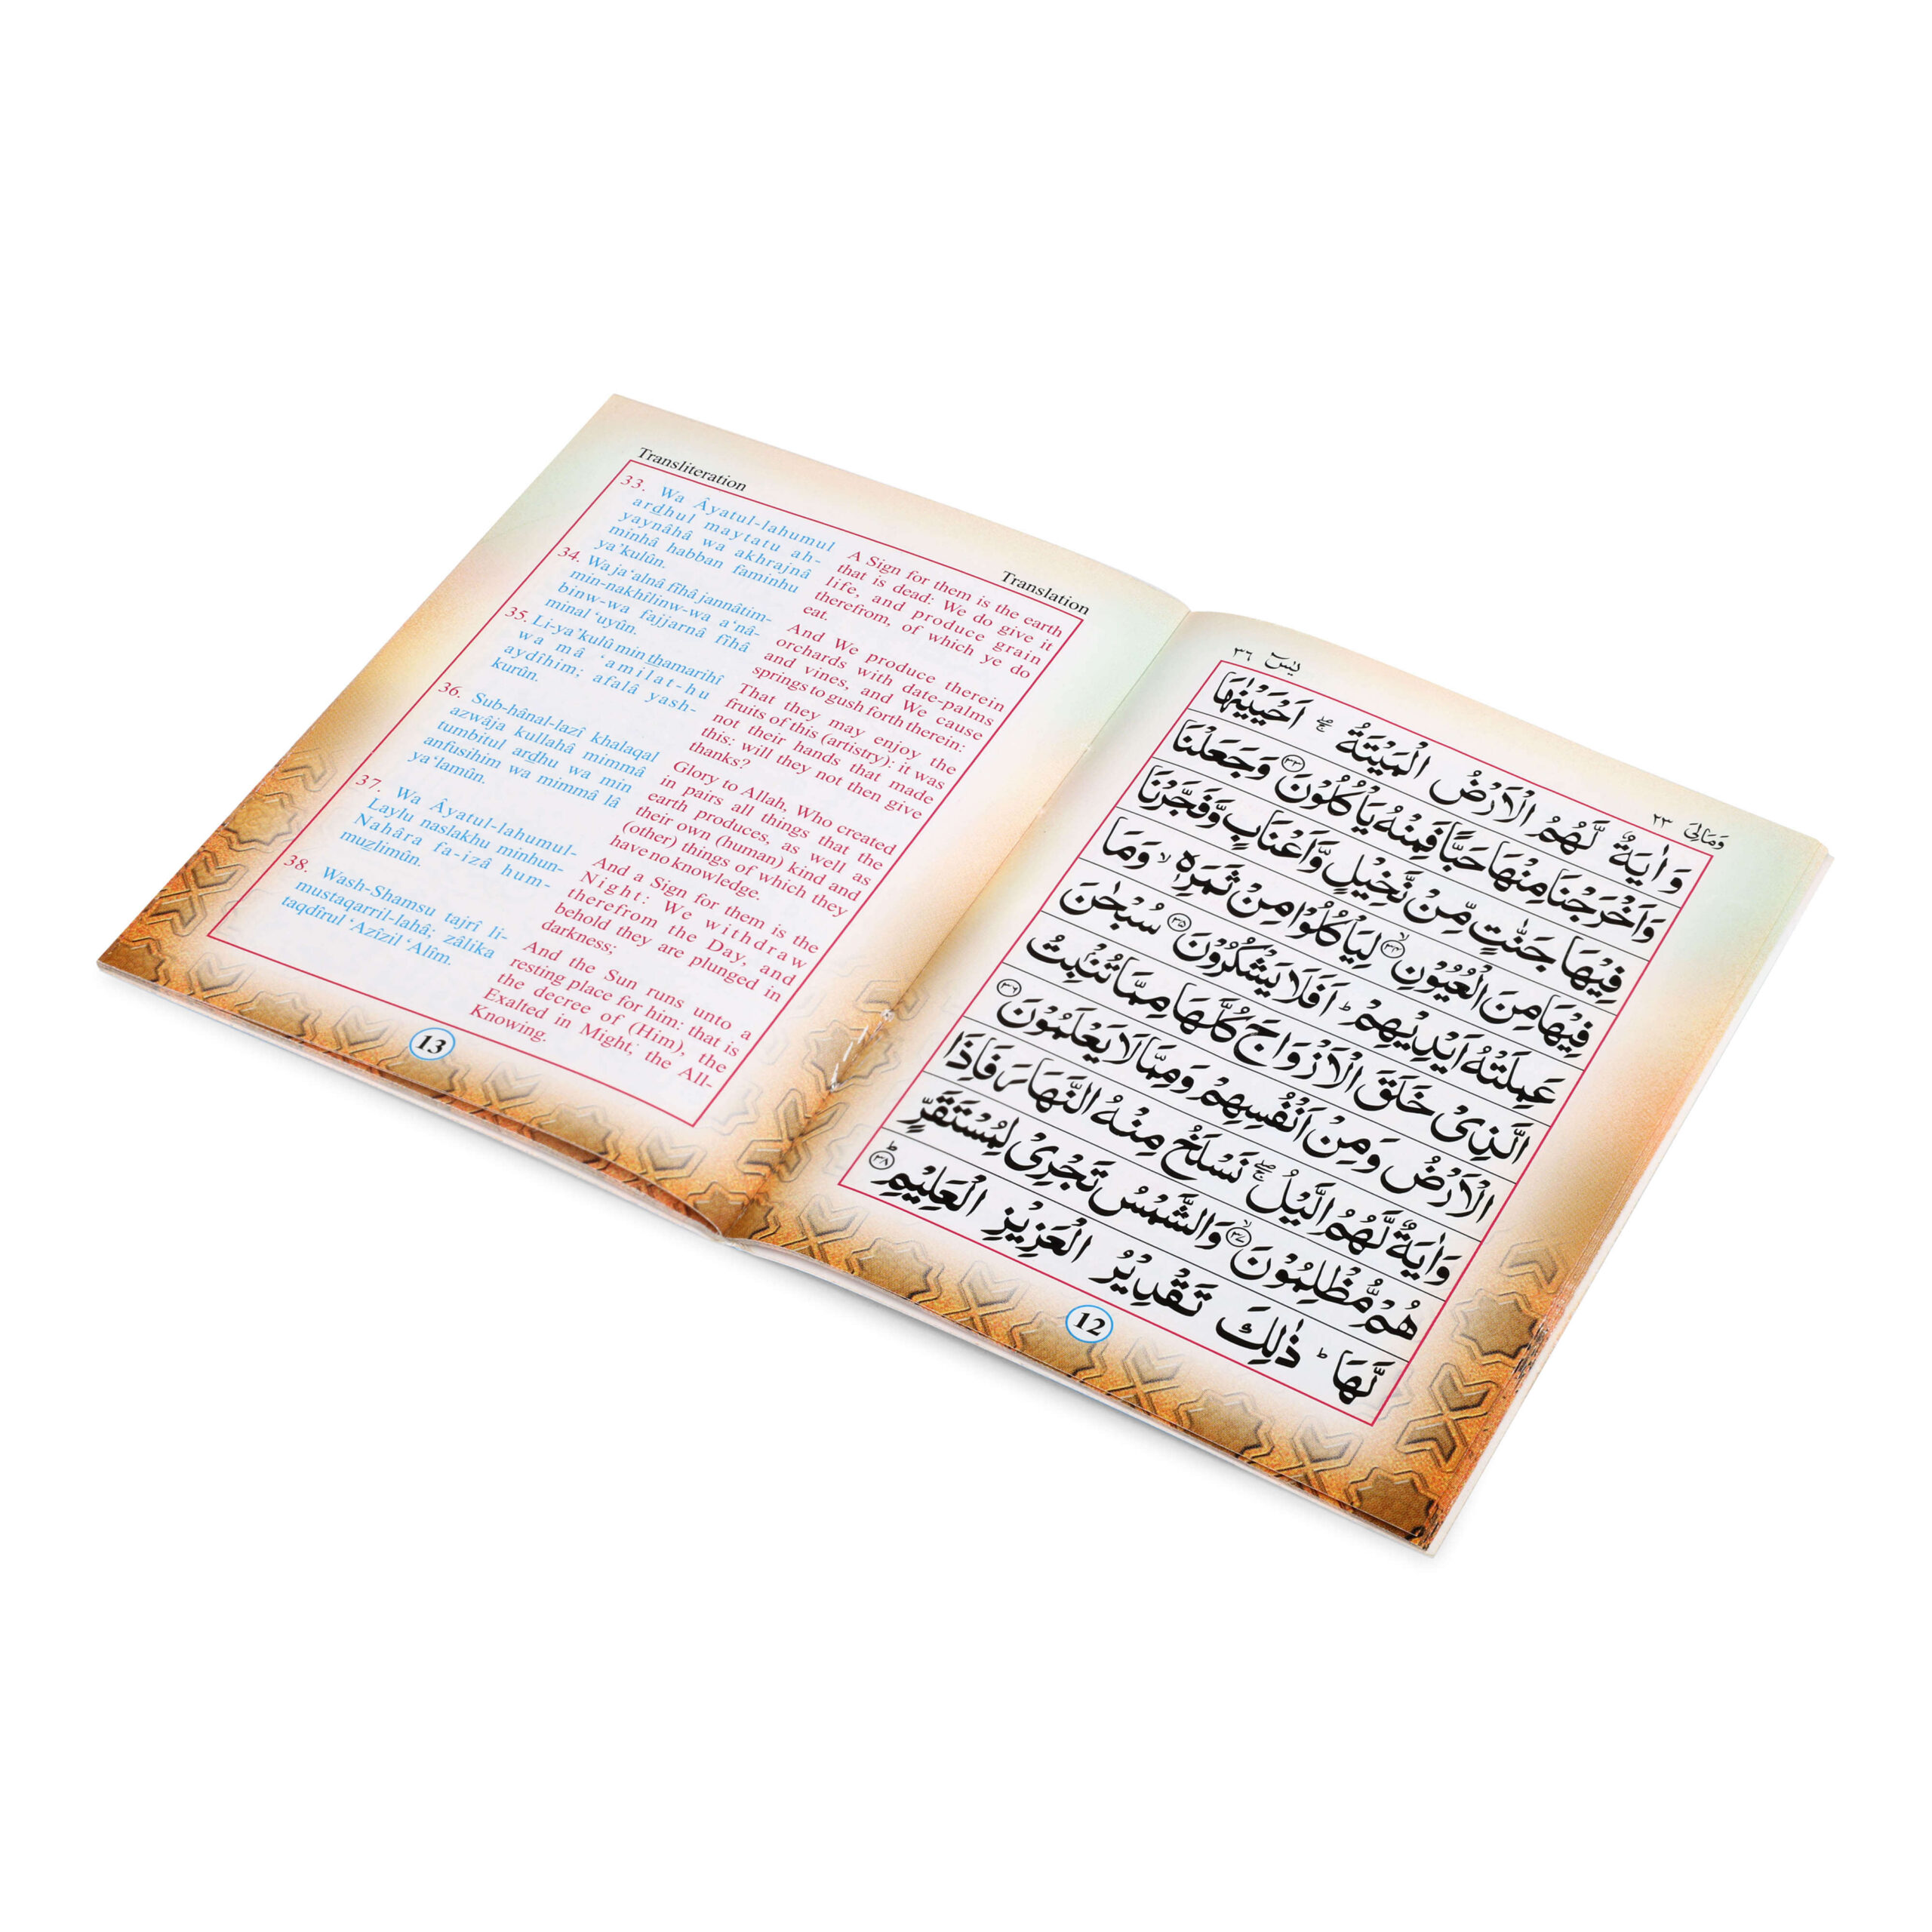 Transliteration
Translation
33. Wa Âyatul-lahumul
ardhul maytatu ah-
yaynâhâ wa akhrajnâ
minhâ habban faminhu
ya’kulûn.
34. Wa ja‘alnâ fîhâ jannâtim-
min-nakhîlinw-wa a‘nâ-
binw-wa fajjarnâ fîhâ
minal ‘uyûn.
35. Li-ya’kulû min thamarihî
wa mâ ‘amilat-hu
aydîhim; afalâ yash-
kurûn.
36. Sub-hânal-lazî khalaqal
azwâja kullahâ mimmâ
tumbitul ardhu wa min
anfusihim wa mimmâ lâ
ya‘lamûn.
37. Wa Âyatul-lahumul-
Laylu naslakhu minhun-
Nahâra fa-izâ hum-
muzlimûn.
38. Wash-Shamsu tajrî li-
mustaqarril-lahâ; zâlika
taqdîrul ‘Azîzil ‘Alîm.
A Sign for them is the earth
that is dead: We do give it
life, and produce grain
therefrom, of which ye do
eat.
And We produce therein
orchards with date-palms
and vines, and We cause
springs to gush forth therein:
That they may enjoy the
fruits of this (artistry): it was
not their hands that made
this: will they not then give
thanks?
Glory to Allah, Who created
in pairs all things that the
earth produces, as well as
their own (human) kind and
(other) things of which they
have no knowledge.
And a Sign for them is the
Night: We withdraw
therefrom the Day, and
behold they are plunged in
darkness;
And the Sun runs unto a
resting place for him: that is
the decree of (Him), the
Exalted in Might, the All-
Knowing.
13
وَمَالِیَ ٢٣
یٰسٓ ٣٦
وَاٰيَةٌ لَّهُمُ الْاَرْضُ الْمَيْتَةُ ۚۖ اَحْيَيْنٰهَا
وَاَخْرَجْنَا مِنْهَا حَبًّا فَمِنْهُ يَاْكُلُوْنَ ٣٣ وَجَعَلْنَا
فِيْهَا جَنّٰتٍ مِّنْ نَّخِيْلٍ وَّاَعْنَابٍ وَّفَجَّرْنَا
فِيْهَا مِنَ الْعُيُوْنِ ۙ ٣٤ لِيَاْكُلُوْا مِنْ ثَمَرِهٖ ۙ وَمَا
عَمِلَتْهُ اَيْدِيْهِمْ ؕ اَفَلَا يَشْكُرُوْنَ ٣٥ سُبْحٰنَ
الَّذِيْ خَلَقَ الْاَزْوَاجَ كُلَّهَا مِمَّا تُنْۢبِتُ
الْاَرْضُ وَمِنْ اَنْفُسِهِمْ وَمِمَّا لَا يَعْلَمُوْنَ ٣٦
وَاٰيَةٌ لَّهُمُ الَّيْلُ ۚۖ نَسْلَخُ مِنْهُ النَّهَارَ فَاِذَا
هُمْ مُّظْلِمُوْنَ ۙ ٣٧ وَالشَّمْسُ تَجْرِيْ لِمُسْتَقَرٍّ
لَّهَا ؕ ذٰلِكَ تَقْدِيْرُ الْعَزِيْزِ الْعَلِيْمِ ؕ ٣٨
12